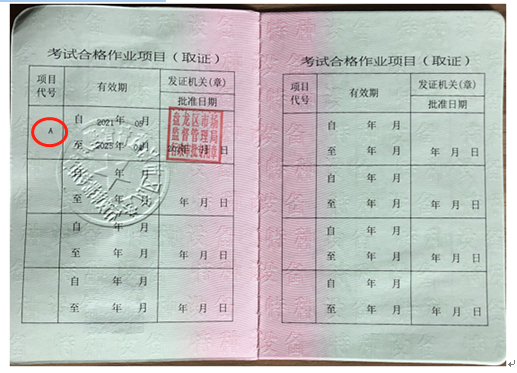 考试合格作业项目（取证）
项目
代号
有效期
发证机关(章)
批准日期
A
自 2021 年 月
至 2025 年 月
区市场
监督管理局
年 月
至 年 月
年 月 日
自 年 月
至 年 月
年 月 日
自 年 月
至 年 月
年 月 日
考试合格作业项目（取证）
项目
代号
有效期
发证机关(章)
批准日期
自 年 月
至 年 月
年 月 日
自 年 月
至 年 月
年 月 日
自 年 月
至 年 月
年 月 日
自 年 月
至 年 月
年 月 日